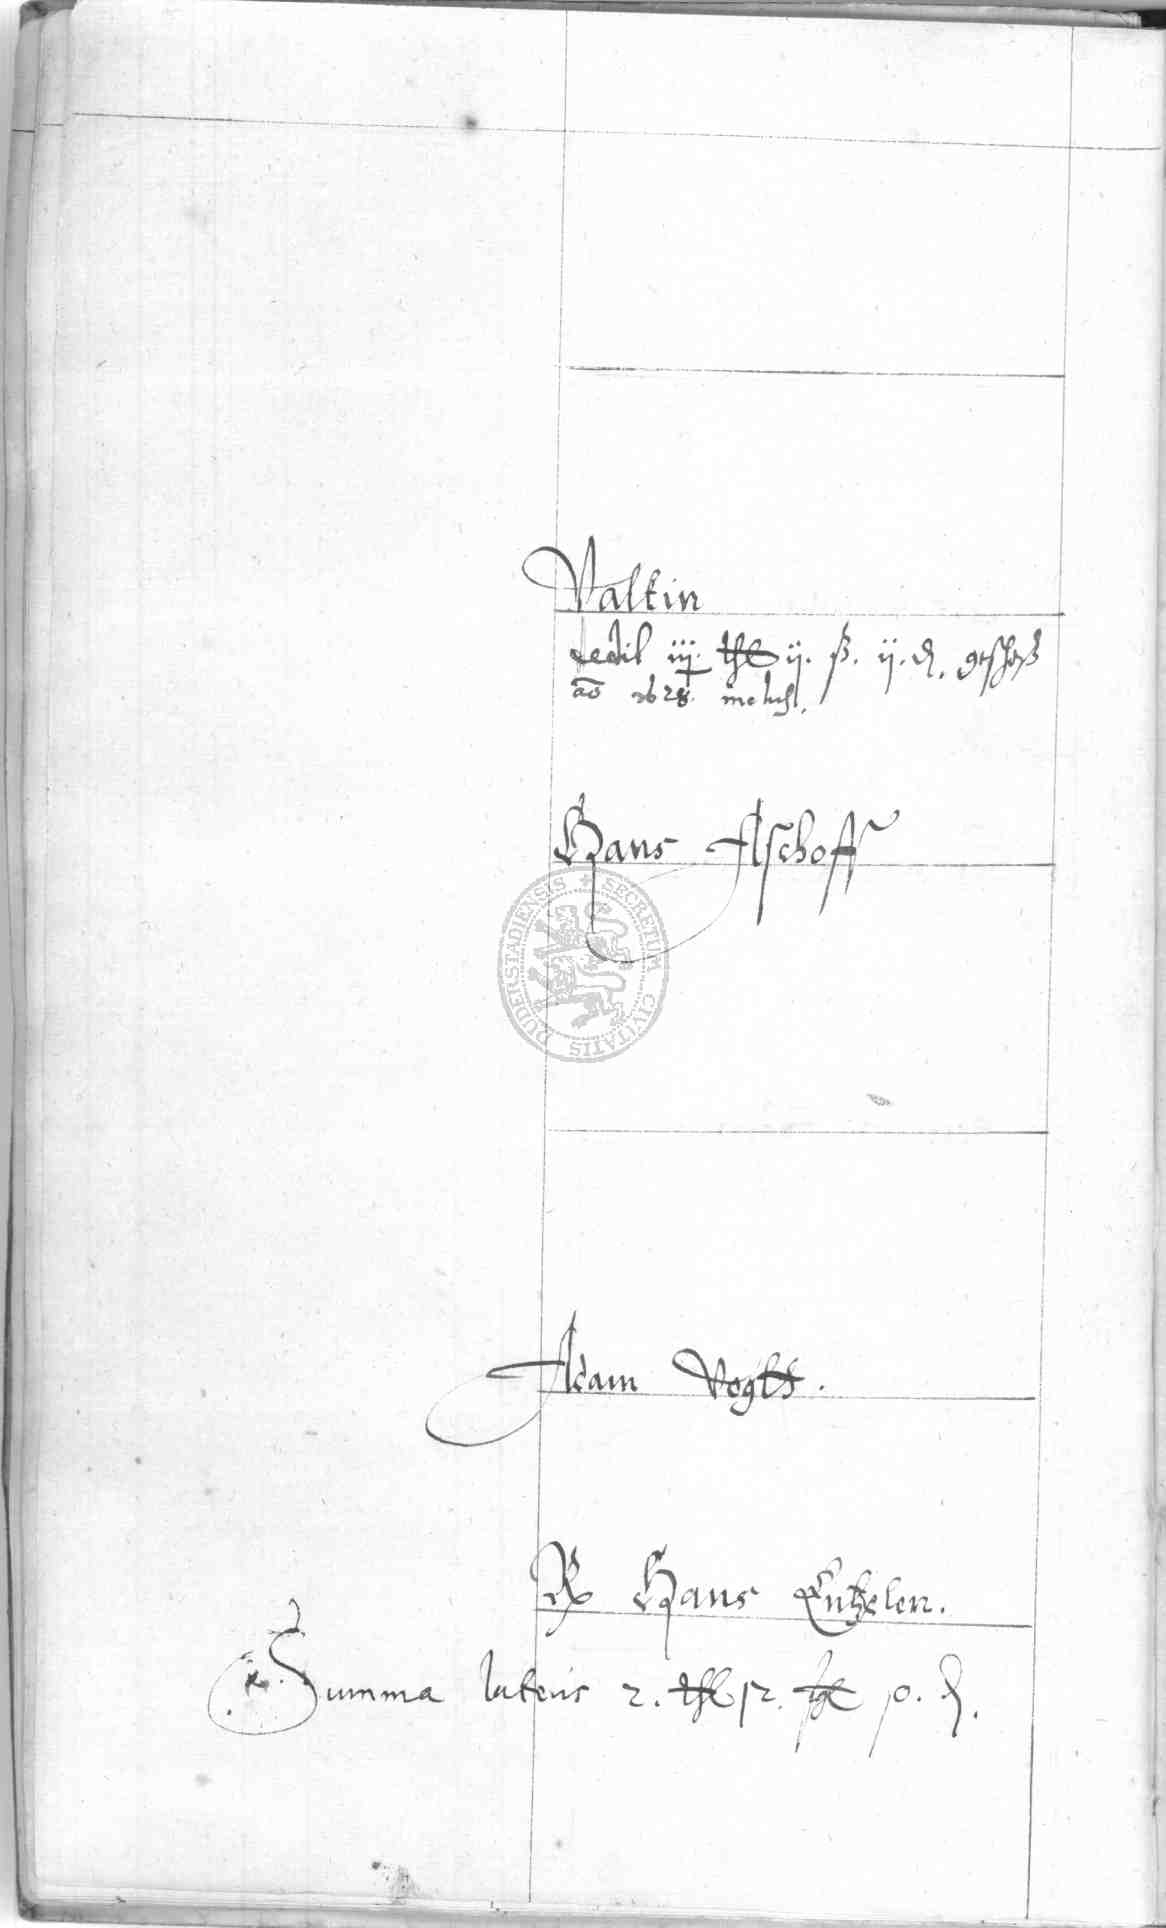 Valtin
dedit iij. thl ij. ß. ij. d. geschoß
ao 1628.
Hans Alschoff
SECRETUM CIVITATIS DUDERSTADIENSIS
Adam Vogtt.
Hans Entzelen.
Summa lateris 2. thl 12. sgl